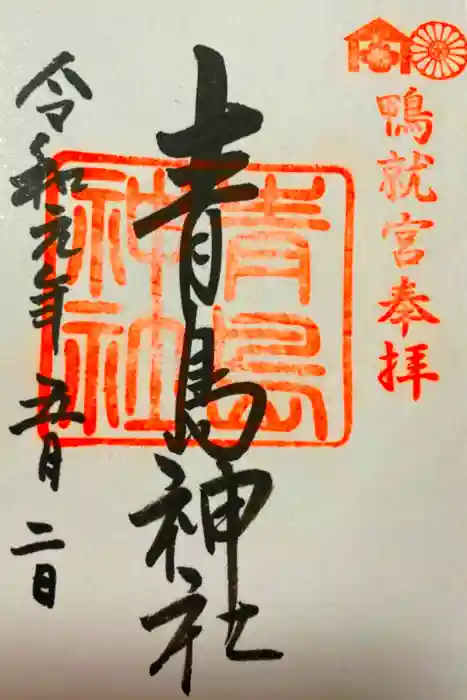 鴨就宮奉拝
青島神社
青島
神社
令和元年五月二日